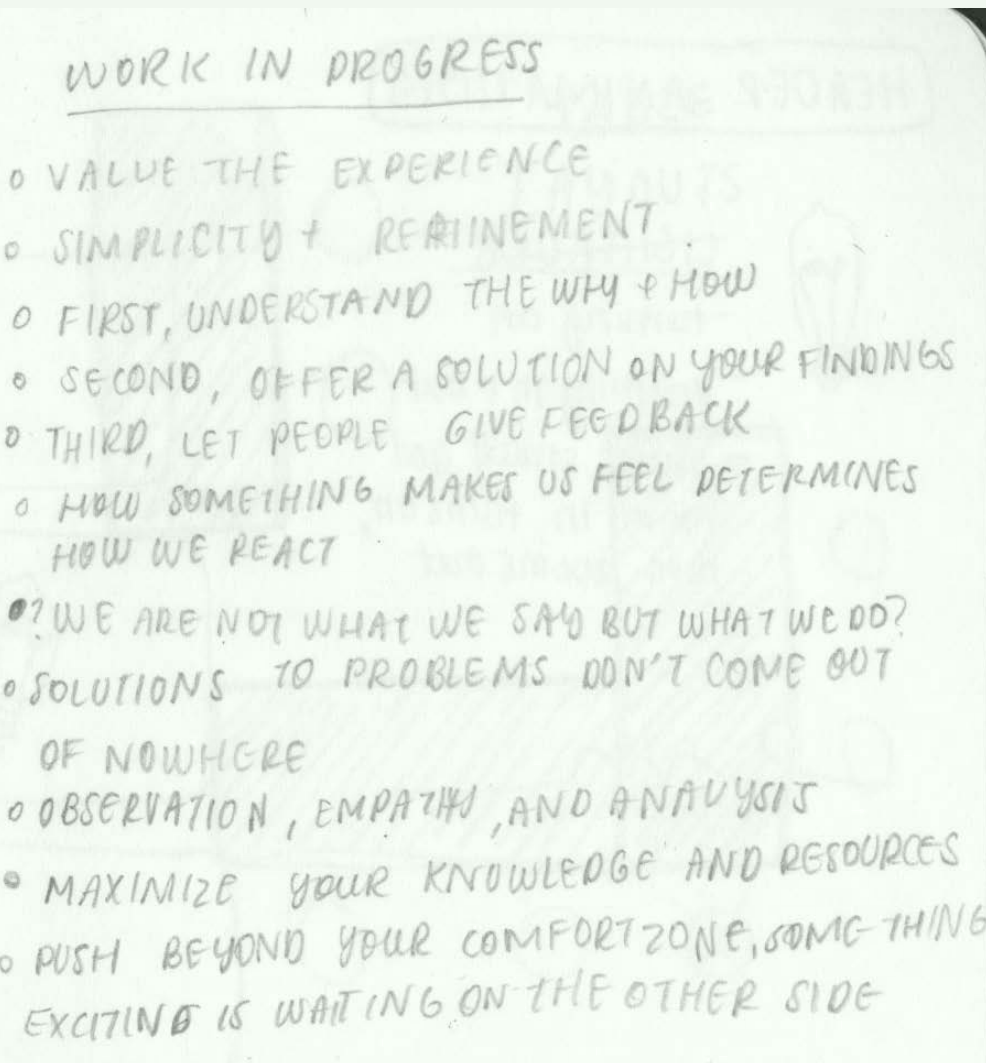 WORK IN PROGRESS
o VALUE THE EXPERIENCE
o SIMPLICITY + REFINEMENT
o FIRST, UNDERSTAND THE WHY + HOW
o SECOND, OFFER A SOLUTION ON YOUR FINDINGS
o THIRD, LET PEOPLE GIVE FEEDBACK
o HOW SOMETHING MAKES US FEEL DETERMINES
HOW WE REACT
•? WE ARE NOT WHAT WE SAY BUT WHAT WE DO?
o SOLUTIONS TO PROBLEMS DON'T COME OUT
OF NOWHERE
o OBSERVATION, EMPATHY, AND ANALYSIS
o MAXIMIZE YOUR KNOWLEDGE AND RESOURCES
o PUSH BEYOND YOUR COMFORT ZONE, SOMETHING
EXCITING IS WAITING ON THE OTHER SIDE